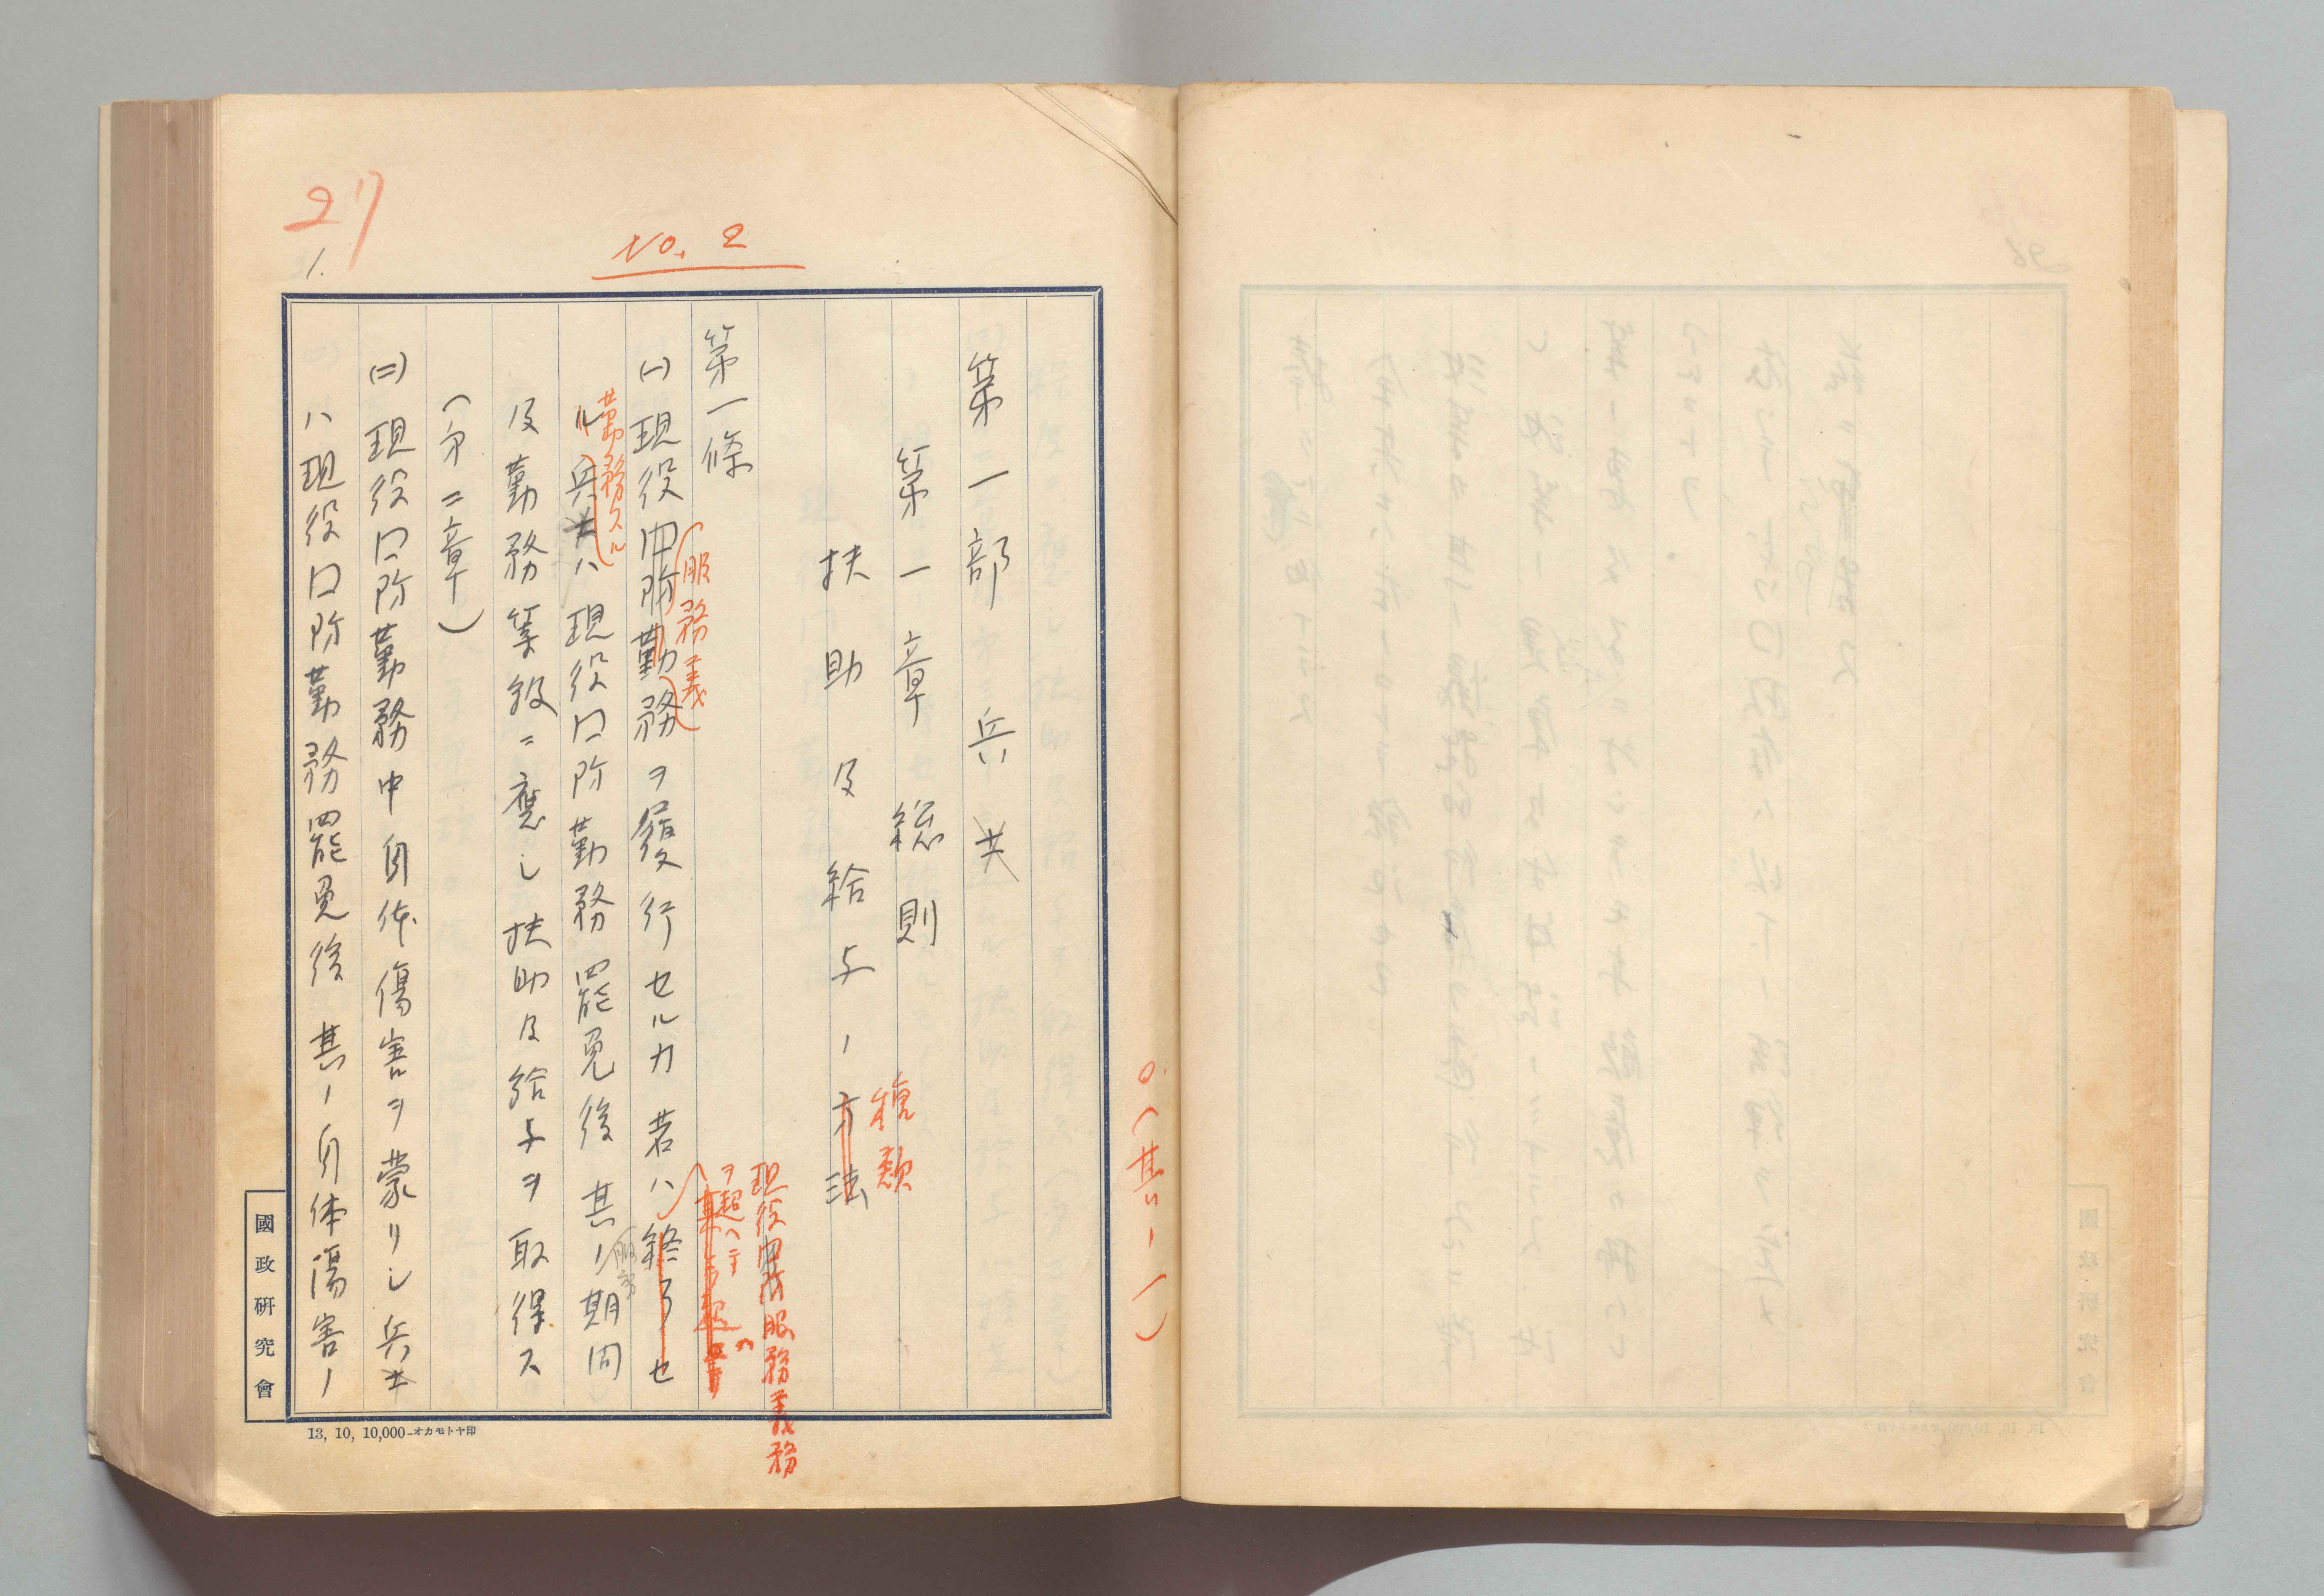 27
1.
No. 2
○(其ノ一)
第一部 兵士
第一章 總則
扶助及給与ノ方法
種類
現役国防服務義務
ヲ超ヘテ
第一條
(服務義)
(一)現役国防勤務ヲ履行セルカ若ハ終了セ
勤務スル
ル兵士ハ現役国防勤務罷免後其ノ期間
服務
及勤務等級ニ應シ扶助及給与ヲ取得ス
(第二章)
(二)現役国防勤務中自体傷害ヲ蒙リシ兵士
ハ現役国防勤務罷免後其ノ自体傷害ノ
國政研究會
13, 10, 10,000—オカモトヤ印